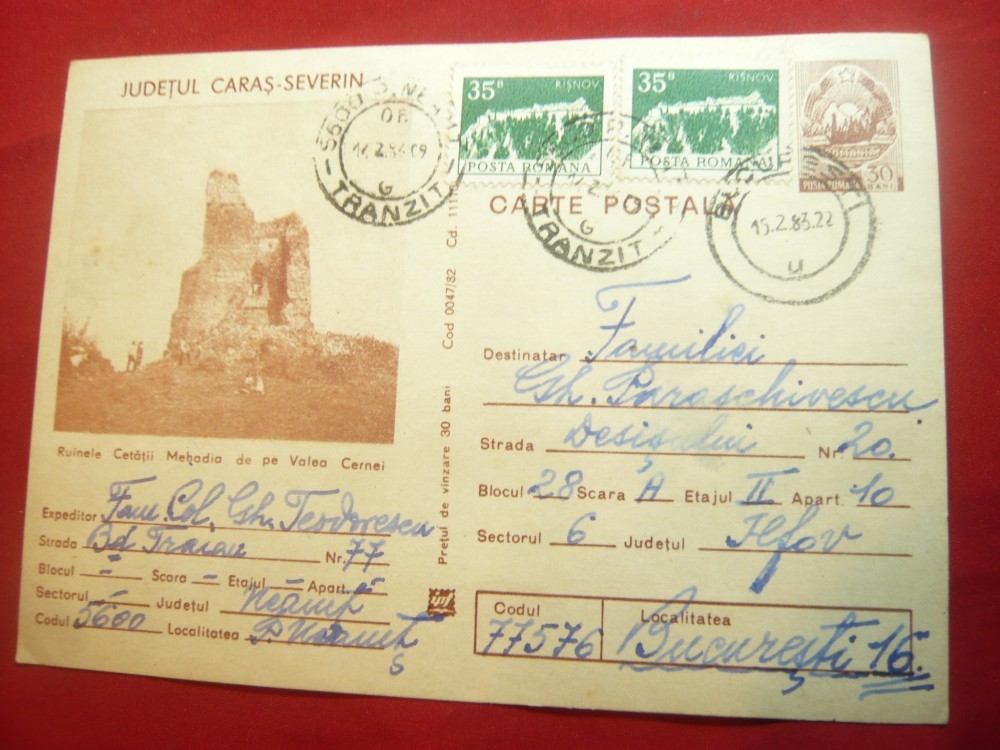 JUDEȚUL CARAȘ-SEVERIN
Ruinele Cetății Mehadia de pe Valea Cernei
Expeditor Fam. Col. Gh. Teodorescu
Strada Bd Traian Nr. 77
Blocul – Scara – Etajul – Apart. –
Sectorul – Județul Neamț
Codul 5600 Localitatea P. Neamț
Prețul de vînzare 30 bani Cod 0047/82 Cd.
35 B RIȘNOV
POSTA ROMANA
35 B RIȘNOV
POSTA ROMANA
ROMANIA
30
BANI
TRANZIT
G
TRANZIT
G
15.2.83.22
U
CARTE POSTALA
Destinatar Familiei
Gh. Paraschivescu
Strada Nr. 20.
Blocul 28 Scara A Etajul II Apart. 10
Sectorul 6 Județul Ilfov
Codul Localitatea
77576 București 16.